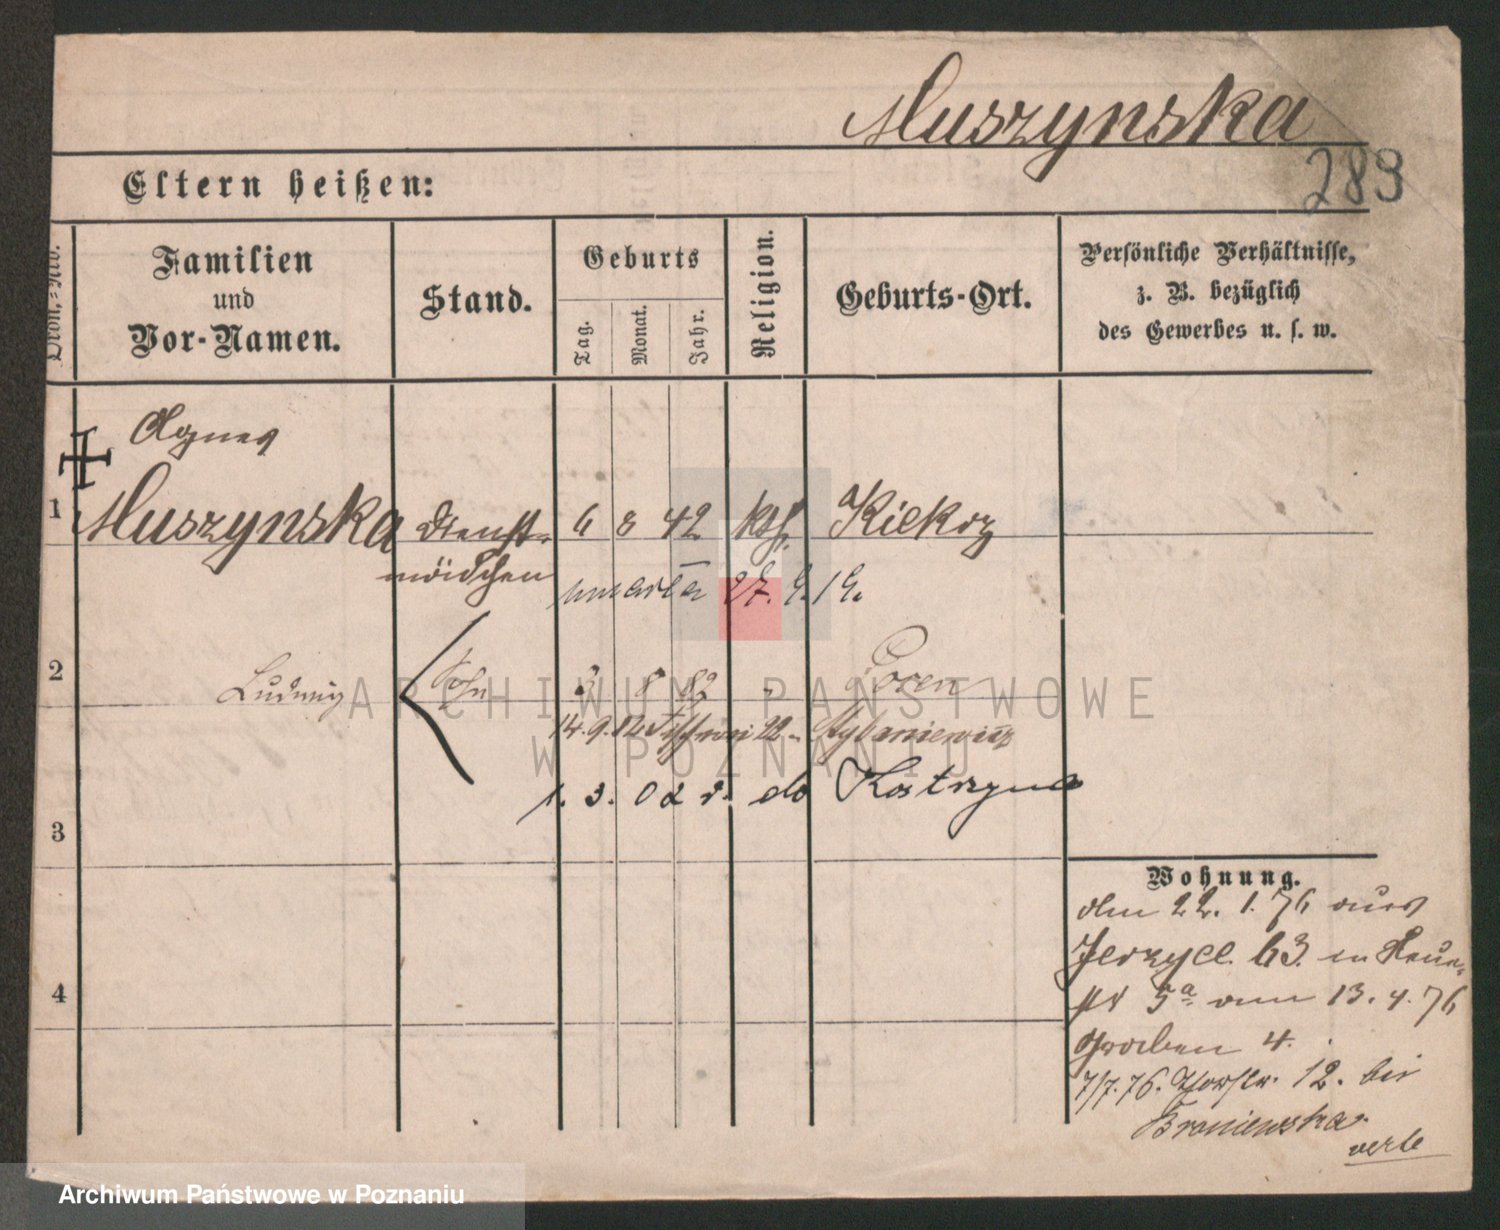 Muszynska
283
Eltern heißen:
Ordn.-Nro.
Familien
und
Vor-Namen.
Stand.
Geburts
Tag.
Monat.
Jahr.
Religion.
Geburts-Ort.
Persönliche Verhältnisse,
z. B. bezüglich
des Gewerbes u. s. w.
Agnes
1 Muszynska Dienst- 6 8 42 kth. Kiekrz
mädchen
umarła 27. 9. 19.
2 Ludwig Sohn 3 8 82 " Posen
14. 9. 12 22
1. 3. 02 r. do Kostrzyna
3
4
Wohnung.
den 22. 1. 76 aus
Jerzyce 63. in Neue-
str 5a am 13. 4. 76
Graben 4.
7/7. 76. 12. bei
Broniewska.
verte
ARCHIWUM PAŃSTWOWE
W POZNANIU
Archiwum Państwowe w Poznaniu